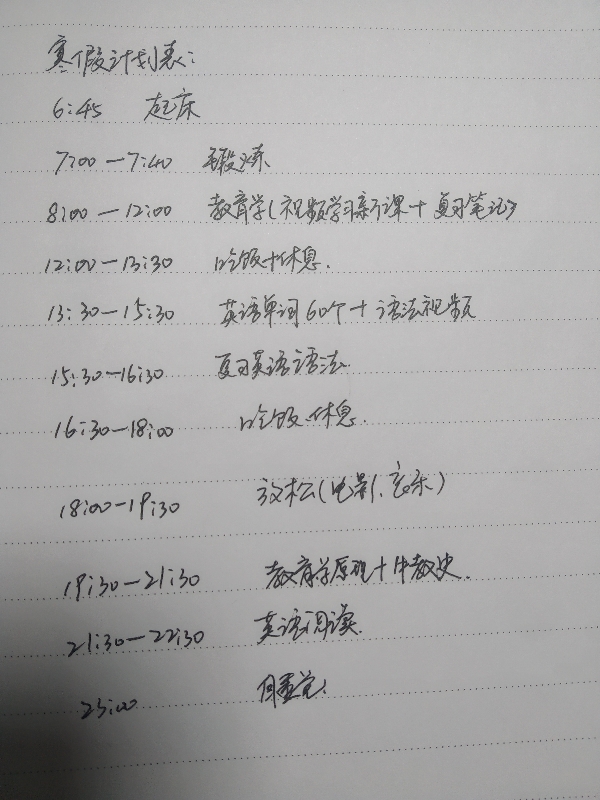 寒假计划表:
6:45 起床
7:00—7:40 锻炼
8:00—12:00 教育学(视频学习新课+复习笔记)
12:00—13:30 吃饭+休息.
13:30—15:30 英语单词60个+语法视频
15:30—16:30 复习英语语法.
16:30—18:00 吃饭休息.
18:00—19:30 放松(电影、音乐)
19:30—21:30 教育学原理+中教史.
21:30—22:30 英语阅读.
23:00 睡觉.